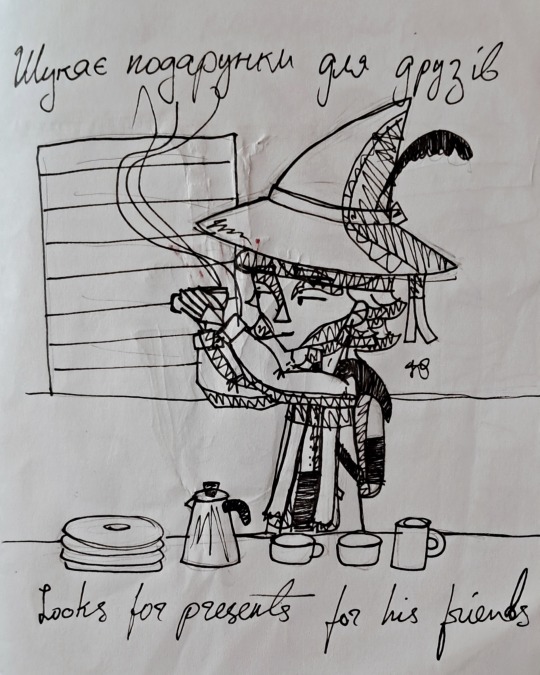 Шукає подарунки для друзів
Looks for presents for his friends